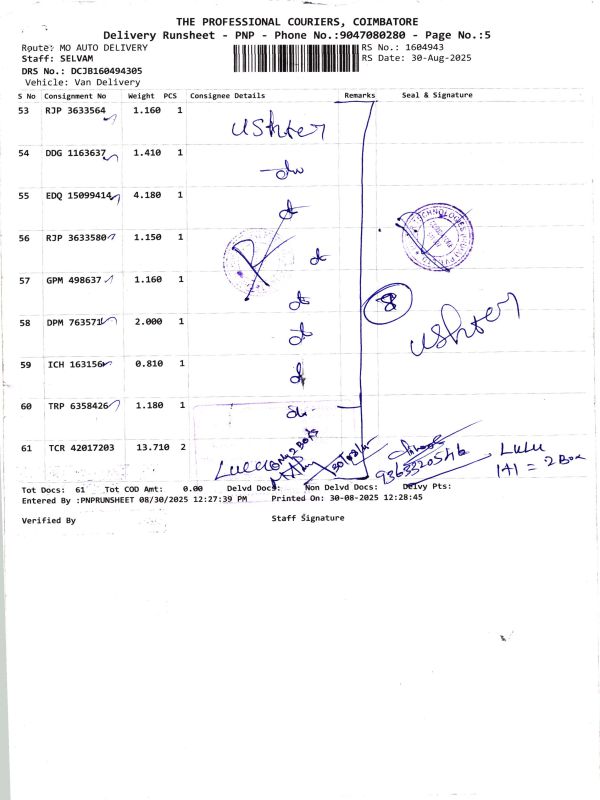 THE PROFESSIONAL COURIERS, COIMBATORE
Delivery Runsheet - PNP - Phone No.:9047080280 - Page No.:5
Route: MO AUTO DELIVERY RS No.: 1604943
Staff: SELVAM RS Date: 30-Aug-2025
DRS No.: DCJB160494305
Vehicle: Van Delivery
S No Consignment No Weight PCS Consignee Details Remarks Seal & Signature
53 RJP 3633564 1.160 1
ushter
54 DDG 1163637 1.410 1
55 EDQ 15099414 4.180 1
56 RJP 3633580 1.150 1
57 GPM 498637 1.160 1
8
58 DPM 763571 2.000 1
ushter
59 ICH 163156 0.810 1
60 TRP 6358426 1.180 1
61 TCR 42017203 13.710 2
LULU
1+1 = 2 Box
Tot Docs: 61 Tot COD Amt: 0.00 Delvd Docs: Non Delvd Docs: Delvy Pts:
Entered By :PNPRUNSHEET 08/30/2025 12:27:39 PM Printed On: 30-08-2025 12:28:45
Verified By Staff Signature